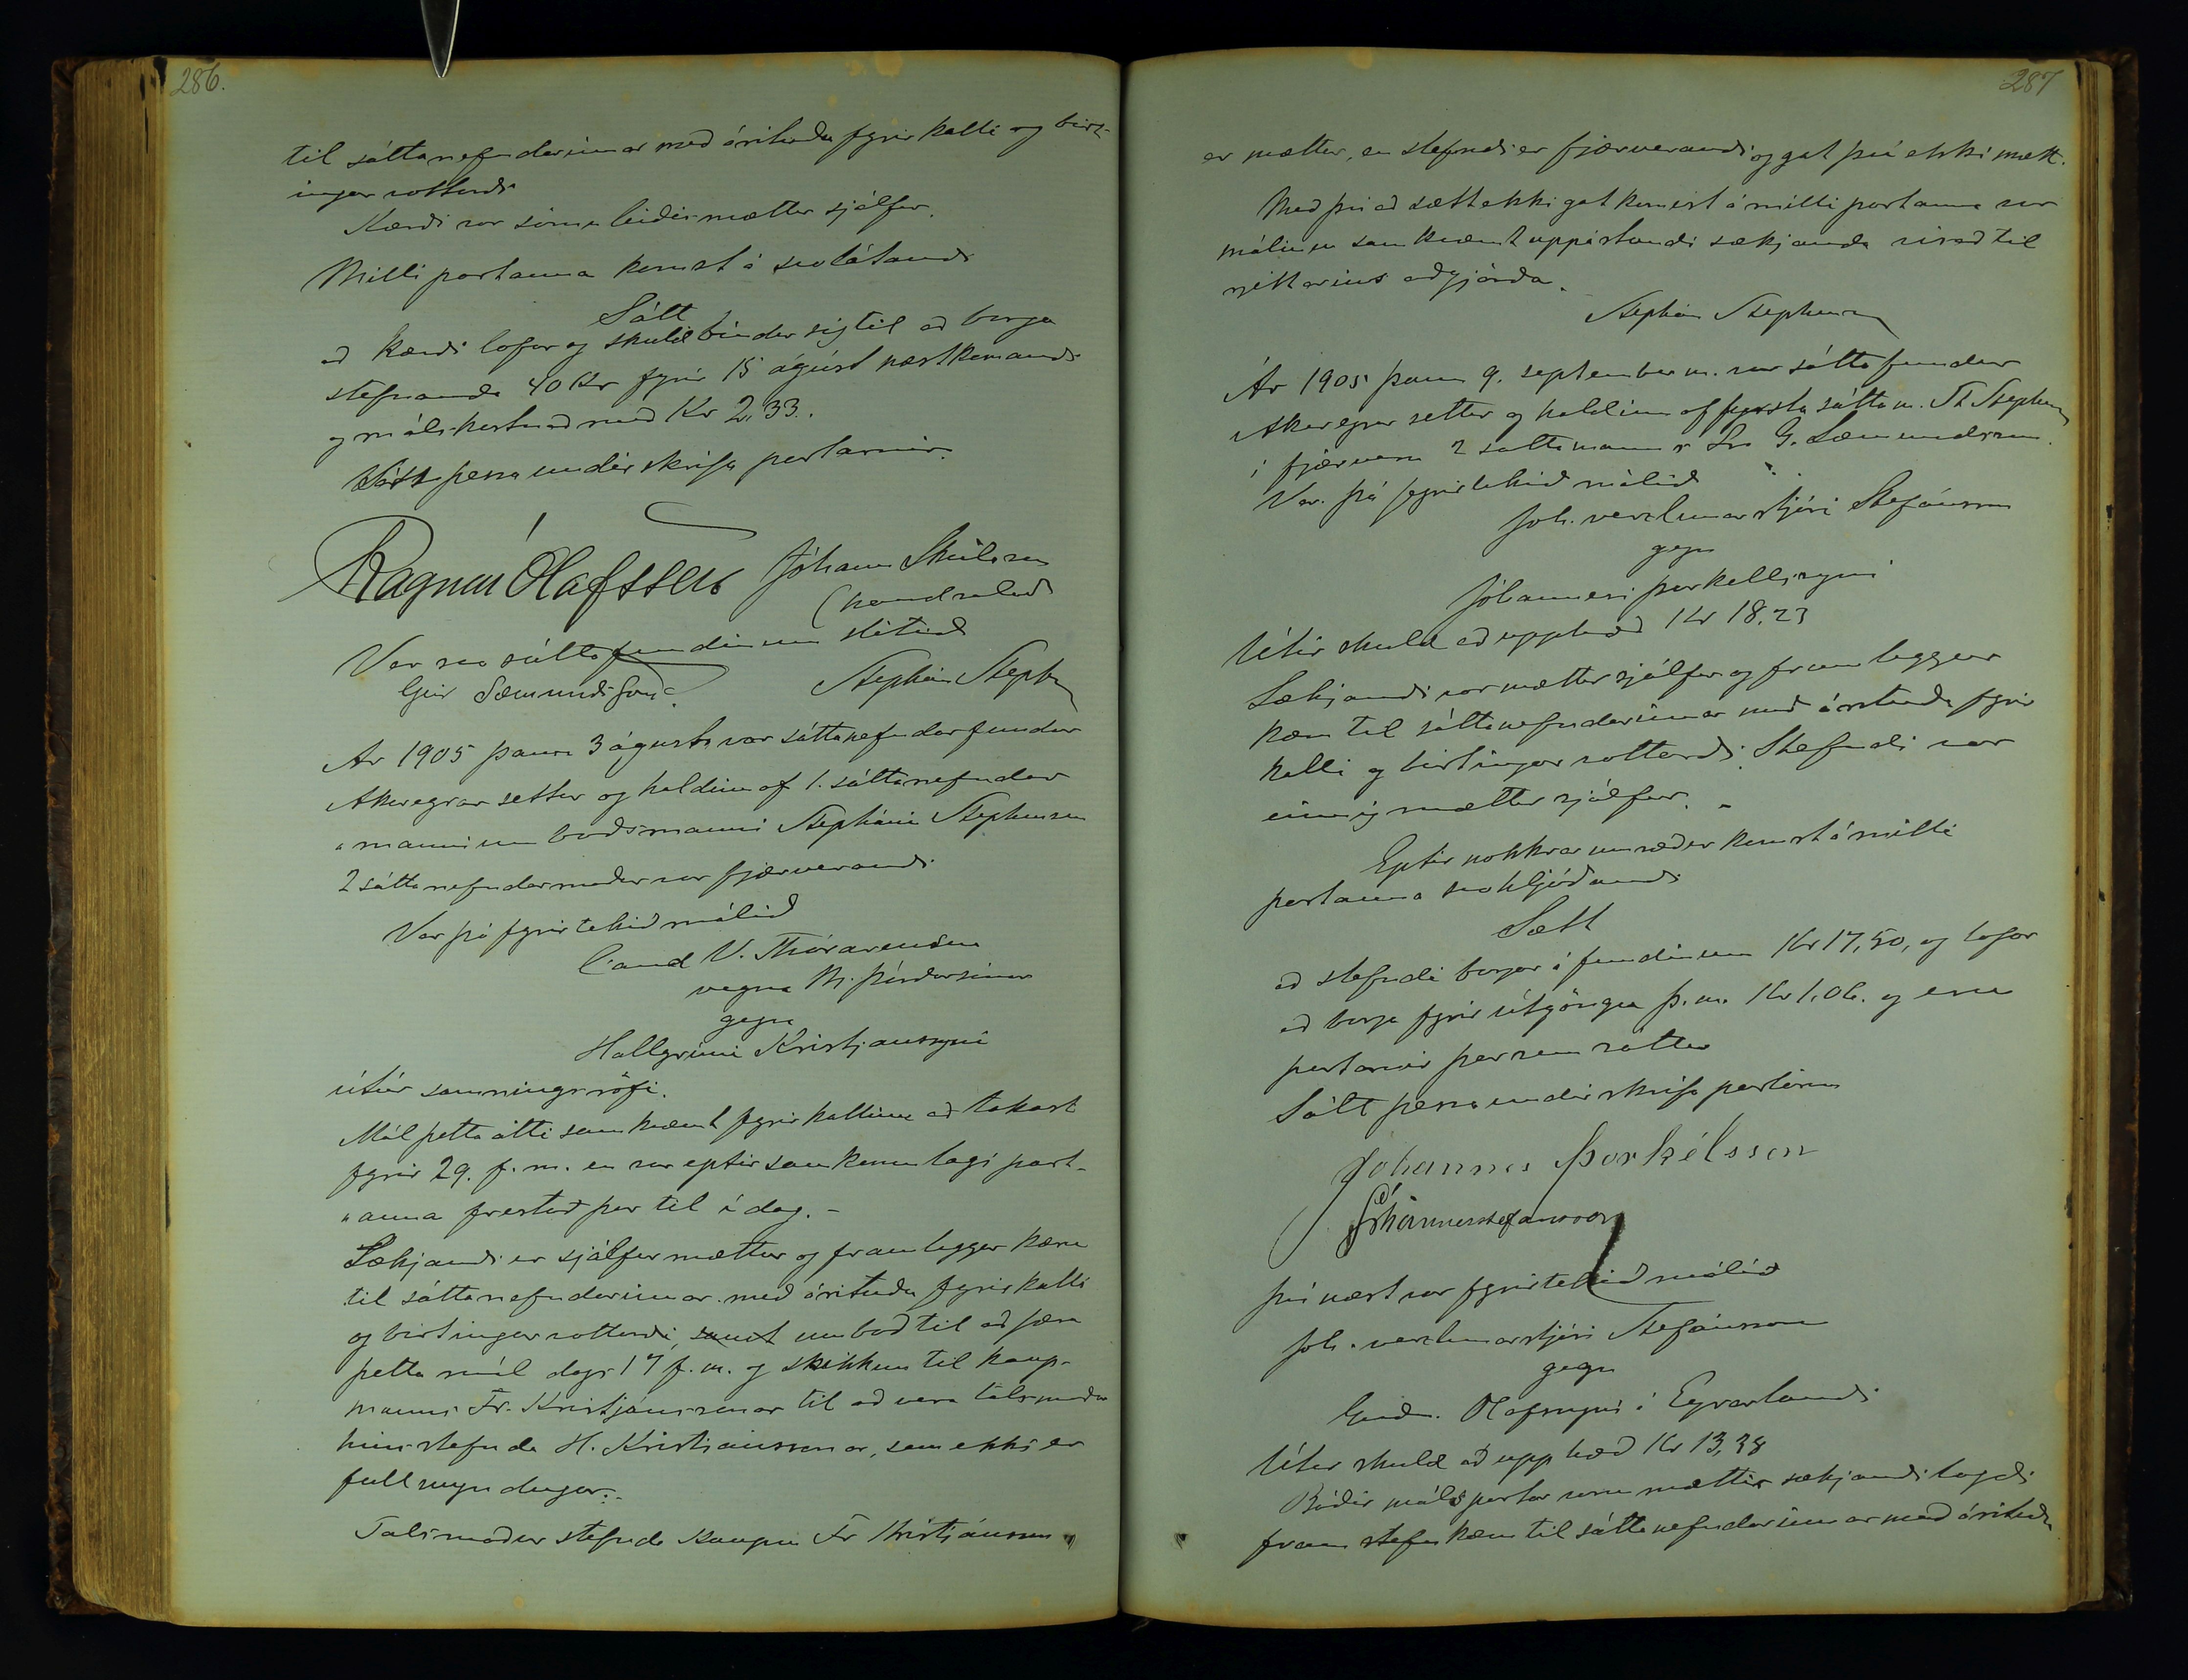 286.
til sáttanefndarinnar með árituðu fyrirkalli og birt-
ingarvottorði
Kærði var sömuleiðis mættur sjálfur.
Milli partanna komst á svolátandi
Sátt
að kærði lofar og skuldbindur sig til að borga
stefnanda 40 Kr fyrir 15 ágúst næstkomandi
og málskostnað með Kr 2,33.
Sátt þessa undirskrifa partarnir.
Ragnar Ólafsson Jóhann Skúlason
(handsalað
Var svo sáttafundinum slitið
Geir Sæmundsson. Stephán Stephensen
Ár 1905 þann 3 ágúst var sáttanefndarfundur
Akureyrar settur og haldinn af 1. sáttanefndar
"manninum umboðsmanni Stepháni Stephensen
2 sáttanefndarmaður var fjærverandi
Var þá fyrirtekið málið
Cand V. Thórarensen
vegna M. Þórðarsonar
gegn
Hallgrími Kristjánssyni
útúr samningsrofi.
Mál þetta átti samkvæmt fyrirkallinu að takast
fyrir 29. f. m. en var eptir samkomulagi part-
"anna frestað þar til í dag. -
Sækjandi er sjálfur mættur og framleggur kæru
til sáttanefndarinnar með árituðu fyrirkalli
og birtingarvottorði, samt umboð til að færa
þetta mál dags 17 f. m. og skikkun til kaup-
manns Fr. Kristjánssonar til að vera talsmaður
hins stefnda H. Kristjánssonar, sem ekki er
fullmyndugur.-
Talsmaður stefnda Kaupm Fr Kristjánsson
287
er mættur, en stefndi er fjærverandi og gat því ekki mætt.
Með því að sætt ekki gat komist á milli partanna var
málinu samkvæmt uppástandi sækjanda vísað til
rjettarins aðgjörða.
Stephán Stephensen
Ár 1905 þann 9. september m. var sáttafundur
Akureyrar settur og haldinn af fyrsta sáttam. St Stephensen
í fjærveru 2 sáttamanns Sra G. Sæmundssonar.
Var þá fyrirtekið málið
Joh. verzlunarstjóri Stefánsson
gegn
Jóhannesi Þorkellssyni
Útúr skuld að upphæð Kr 18.23
Sækjandi var mættur sjálfur og framleggur
kæru til sáttanefndarinnar með árituðu fyrir
kalli og birtingarvottorði. Stefndi var
einnig mættur sjálfur. -
Eptir nokkrar umræður komst á milli
partanna svohljóðandi
Sætt
að stefndi borgar á fundinum Kr 17,50, og lofar
að borga fyrir útgöngu þ. m. Kr 1,06. og eru
partarnir þar sem sáttir
Sátt þessa undirskrifa partarnir
Jóhannes Þorkélsson
Jóhannes Stefánsson
því næst var fyrirtekið málið
Joh. verzlunarstjóri Stefánsson
gegn
Guðm. Ólafssyni á Eyrarlandi
Útúr skuld að upphæð Kr 13,38
Báðir málspartar voru mættir sækjandi lagði
fram stefnukæru til sáttanefndarinnar með árituðu